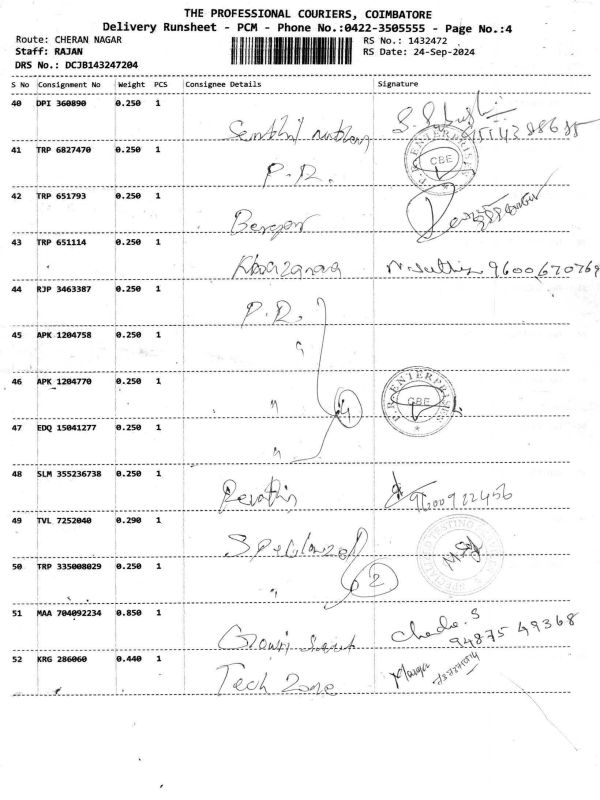 THE PROFESSIONAL COURIERS, COIMBATORE
Delivery Runsheet - PCM - Phone No.:0422-3505555 - Page No.:4
Route: CHERAN NAGAR RS No.: 1432472
Staff: RAJAN RS Date: 24-Sep-2024
DRS No.: DCJB143247204
S No Consignment No Weight PCS Consignee Details Signature
40 DPI 360890 0.250 1
41 TRP 6827470 0.250 1 P.R. P.R ENTERPRISES CBE
42 TRP 651793 0.250 1
43 TRP 651114 0.250 1 9600670768
44 RJP 3463387 0.250 1 P.R.
45 APK 1204758 0.250 1 "
46 APK 1204770 0.250 1 " 4 P.R ENTERPRISES CBE
47 EDQ 15041277 0.250 1 "
48 SLM 355236738 0.250 1 9600922456
49 TVL 7252040 0.290 1
50 TRP 335008029 0.250 1 " 2
51 MAA 704092234 0.850 1 Gowri 94875 49368
52 KRG 286060 0.440 1 Tech Zone